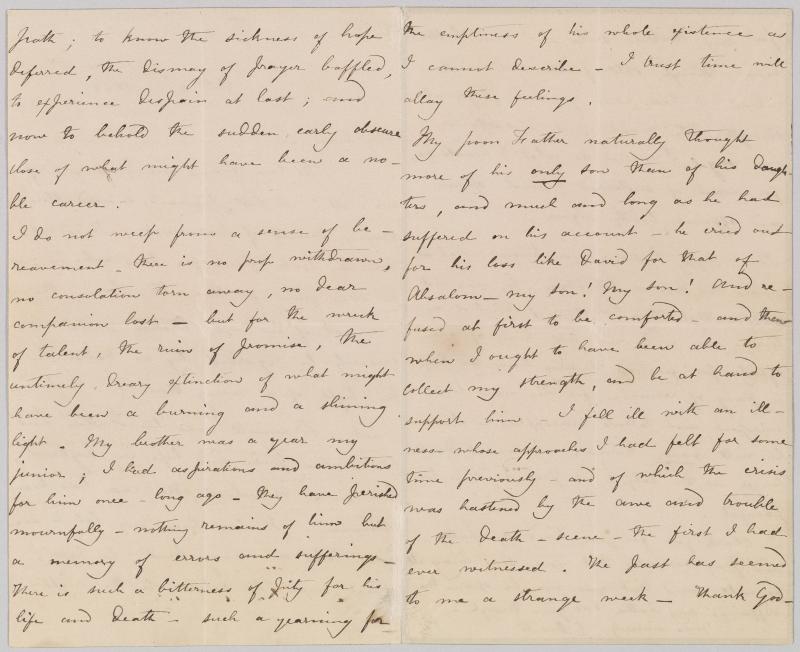 path; to know the sickness of hope
deferred, the dismay of prayer baffled,
to experience despair at last; and
now to behold the sudden early obscure
close of what might have been a no-
ble career.
I do not weep from a sense of be-
reavement - there is no prop withdrawn,
no consolation torn away, no dear
companion lost - but for the wreck
of talent, the ruin of promise, the
untimely, dreary extinction of what might
have been a burning and a shining
light. My brother was a year my
junior; I had aspirations and ambitions
for him once - long ago - they have perished
mournfully - nothing remains of him but
a memory of errors and sufferings -
There is such a bitterness of pity for his
life and death - such a yearning for
the emptiness of his whole existence as
I cannot describe - I trust time will
allay these feelings.
My poor Father naturally thought
more of his only son than of his daugh-
ters, and much and long as he had
suffered on his account - he cried out
for his loss like David for that of
Absalom - my son! My son! And re-
fused at first to be comforted - and then
when I ought to have been able to
collect my strength, and be at hand to
support him - I fell ill with an ill-
ness - whose approaches I had felt for some
time previously - and of which the crisis
was hastened by the awe and trouble
of the death-scene - the first I had
ever witnessed. The past has seemed
to me a strange week - Thank God -